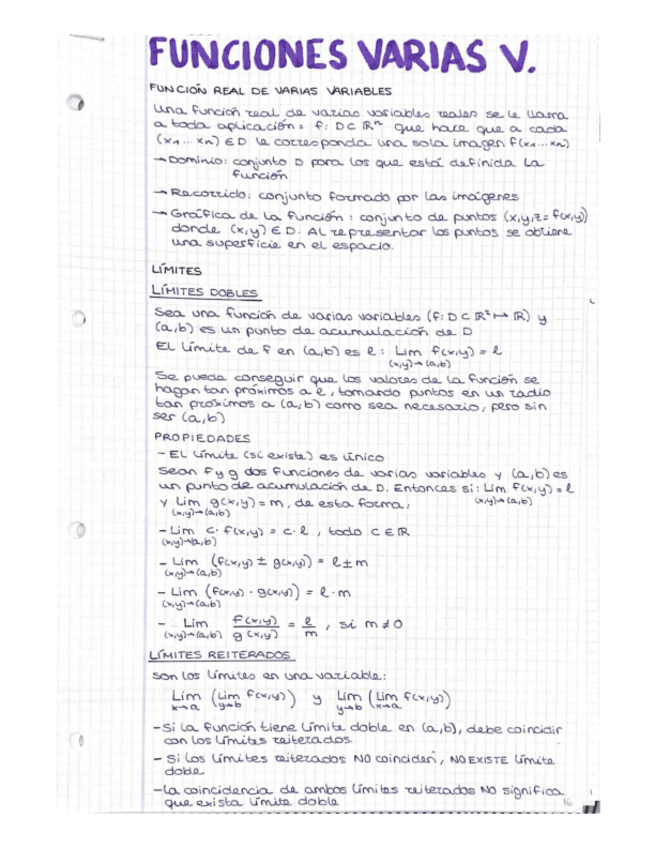 FUNCIONES VARIAS V.
FUNCIÓN REAL DE VARIAS VARIABLES
Una función real de varias variables reales se le llama
a toda aplicación = f: D ⊂ ℝⁿ que hace que a cada
(x₁...xₙ) ∈ D le corresponda una sola imagen f(x₁...xₙ)
→ Dominio: conjunto D para los que está definida la
función
→ Recorrido: conjunto formado por las imágenes
→ Gráfica de la función: conjunto de puntos (x,y,z = f(x,y))
donde (x,y) ∈ D. Al representar los puntos se obtiene
una superficie en el espacio.
LÍMITES
LÍMITES DOBLES
Sea una función de varias variables (f: D ⊂ ℝ² ↦ ℝ) y
(a,b) es un punto de acumulación de D
El límite de f en (a,b) es ℓ: Lim f(x,y) = ℓ
(x,y)→(a,b)
Se puede conseguir que los valores de la función se
hagan tan próximos a ℓ, tomando puntos en un radio
tan próximos a (a,b) como sea necesario, pero sin
ser (a,b)
PROPIEDADES
- El límite (si existe) es único
Sean f y g dos funciones de varias variables y (a,b) es
un punto de acumulación de D. Entonces si: Lim f(x,y) = ℓ
(x,y)→(a,b)
y Lim g(x,y) = m, de esta forma:
(x,y)→(a,b)
- Lim c · f(x,y) = c · ℓ, todo c ∈ ℝ
(x,y)→(a,b)
- Lim (f(x,y) ± g(x,y)) = ℓ ± m
(x,y)→(a,b)
- Lim (f(x,y) · g(x,y)) = ℓ · m
(x,y)→(a,b)
- Lim f(x,y)/g(x,y) = ℓ/m, si m ≠ 0
(x,y)→(a,b)
LÍMITES REITERADOS
Son los límites en una variable:
Lim (Lim f(x,y)) y Lim (Lim f(x,y))
x→a y→b y→b x→a
- Si la función tiene límite doble en (a,b), debe coincidir
con los límites reiterados.
- Si los límites reiterados NO coinciden, NO EXISTE límite
doble
- La coincidencia de ambos límites reiterados NO significa
que exista límite doble
16